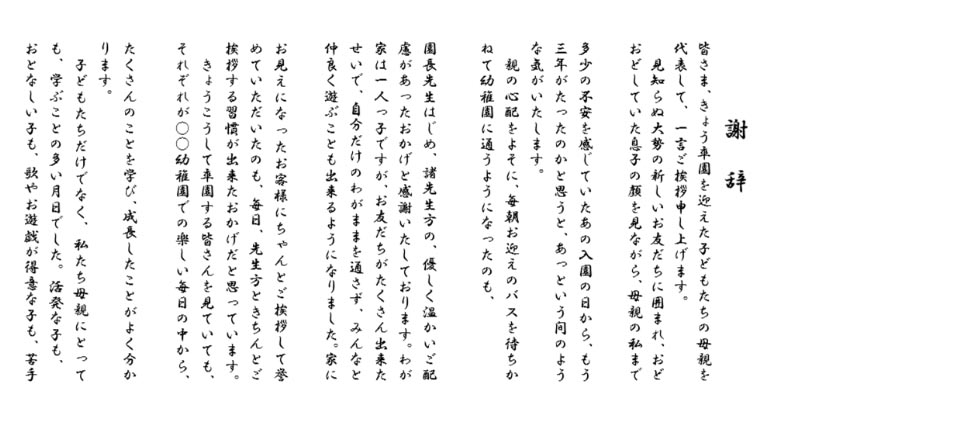 謝辞
皆さま、きょう卒園を迎えた子どもたちの母親を
代表して、一言ご挨拶申し上げます。
見知らぬ大勢の新しいお友だちに囲まれ、おど
おどしていた息子の顔を見ながら、母親の私まで
多少の不安を感じていたあの入園の日から、もう
三年がたったのかと思うと、あっという間のよう
な気がいたします。
親の心配をよそに、毎朝お迎えのバスを待ちか
ねて幼稚園に通うようになったのも、
園長先生はじめ、諸先生方の、優しく温かいご配
慮があったおかげと感謝いたしております。わが
家は一人っ子ですが、お友だちがたくさん出来た
せいで、自分だけのわがままを通さず、みんなと
仲良く遊ぶことも出来るようになりました。家に
お見えになったお客様にちゃんとご挨拶して誉
めていただいたのも、毎日、先生方ときちんとご
挨拶する習慣が出来たおかげだと思っています。
きょうこうして卒園する皆さんを見ていても、
それぞれが〇〇幼稚園での楽しい毎日の中から、
たくさんのことを学び、成長したことがよく分か
ります。
子どもたちだけでなく、私たち母親にとって
も、学ぶことの多い月日でした。活発な子も、
おとなしい子も、歌やお遊戯が得意な子も、苦手